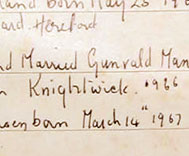 and born May 25 19
ard. Hereford
nd Married Gunvald Man
n Knightwick. 1966
sen born March 14th 1967